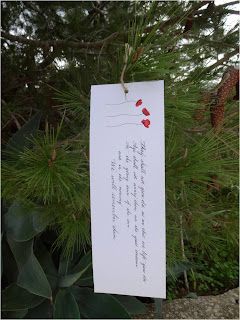 They shall not grow old as we are left grow old
Age shall not weary them nor the years condemn
At the going down of the sun
and in the morning
We will remember them.